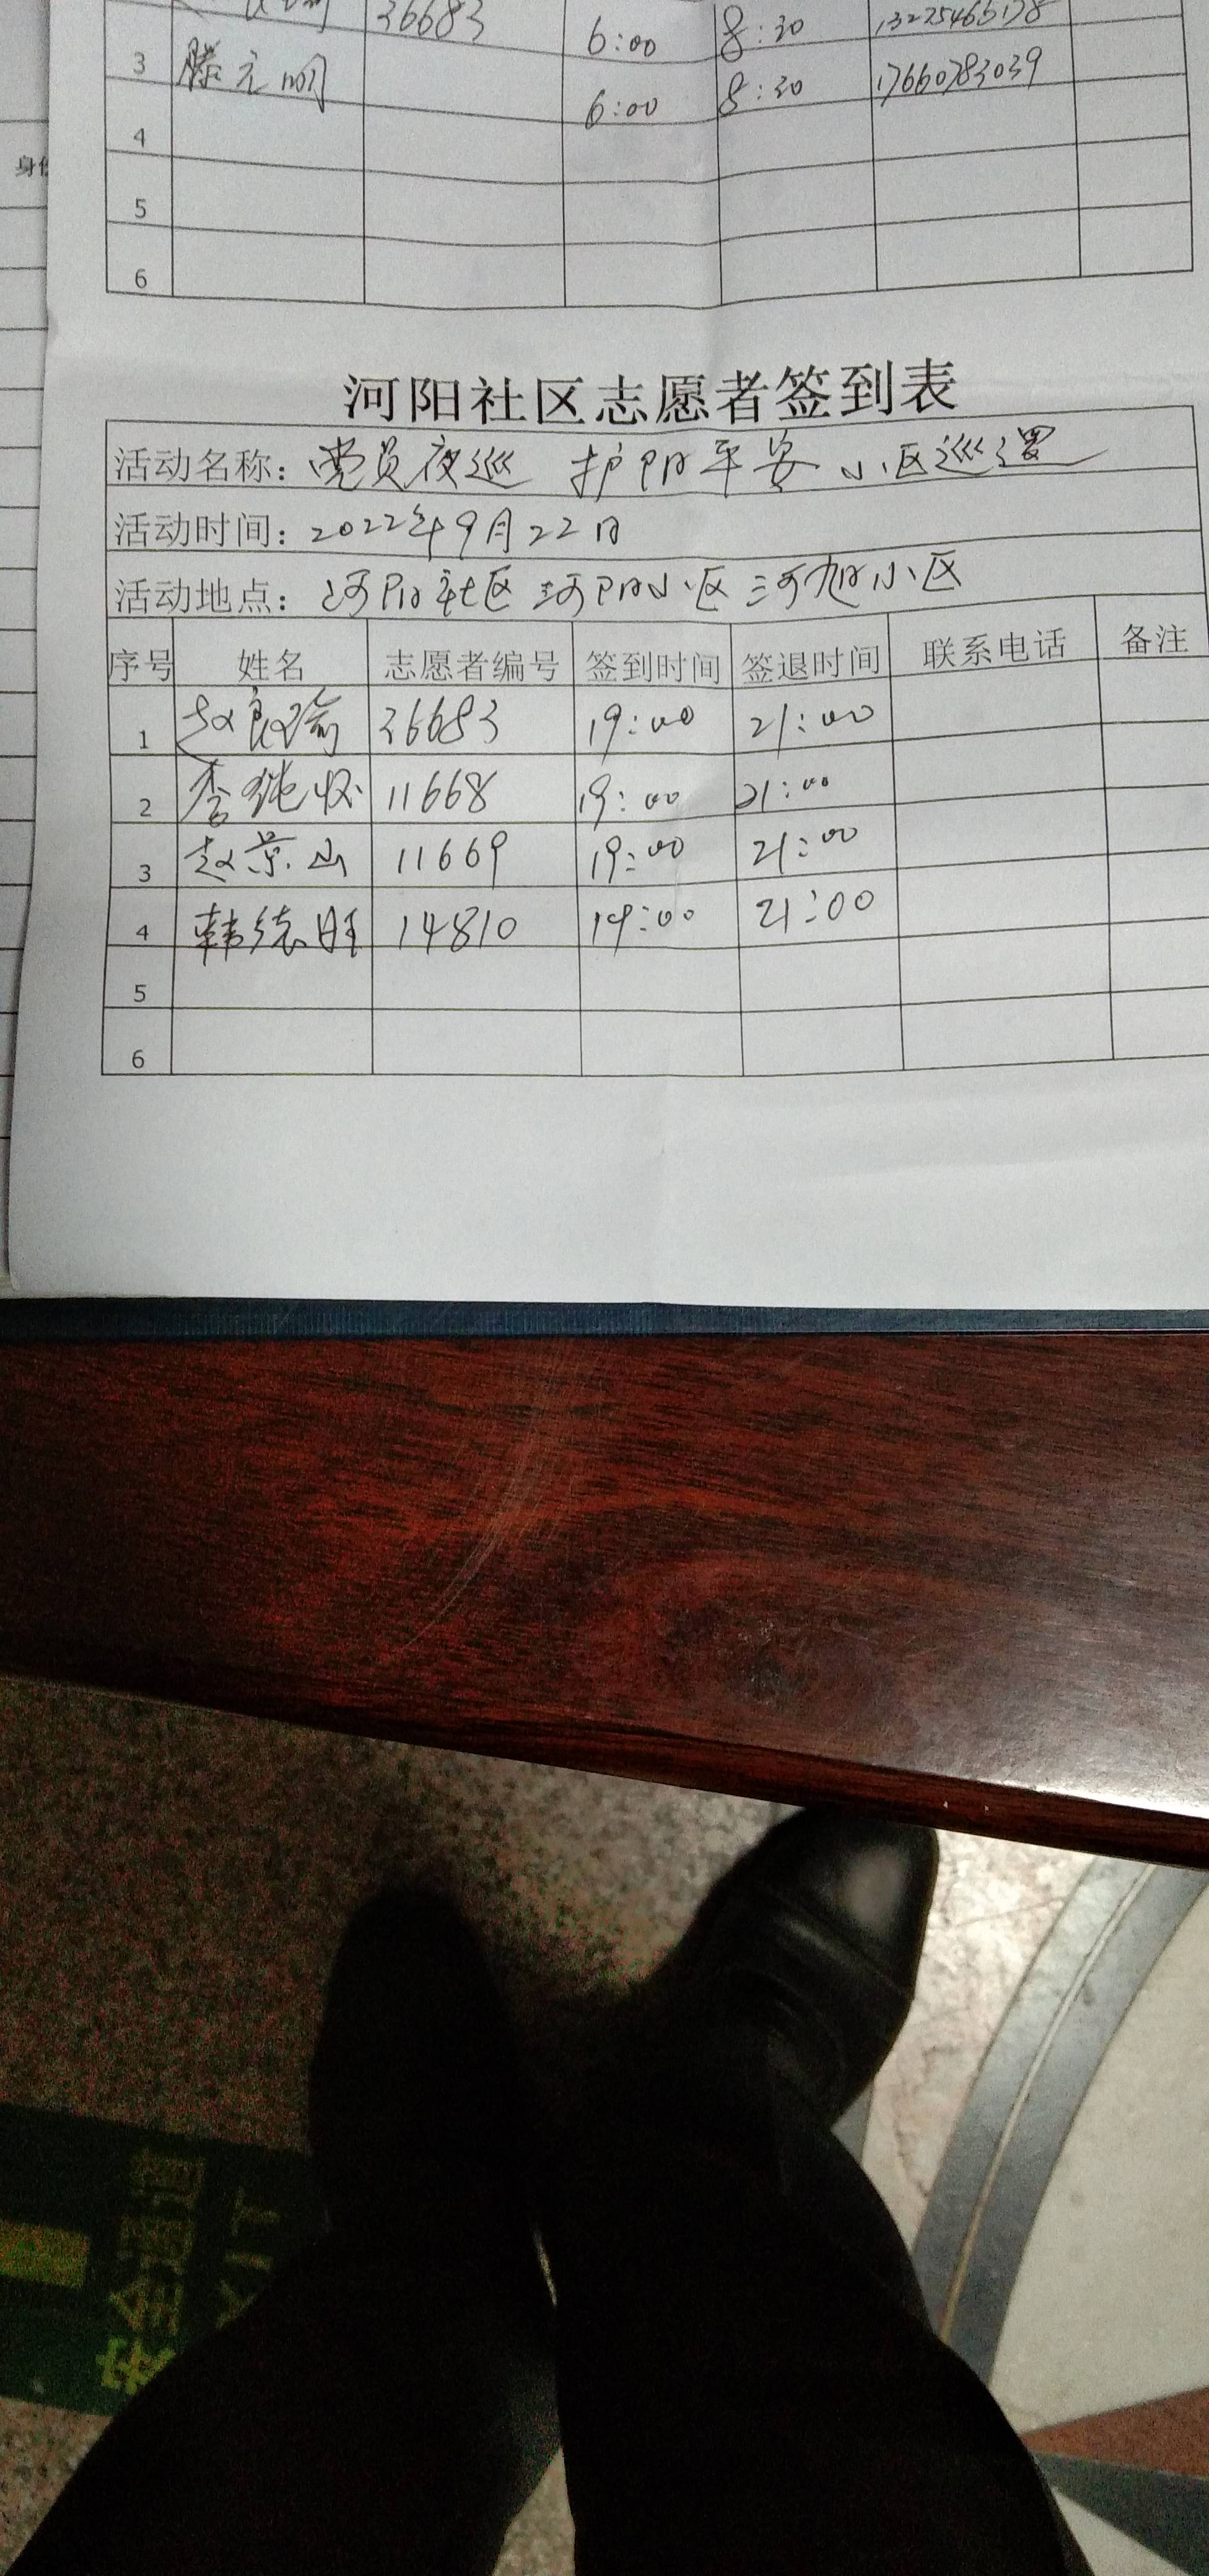 36683 6:00 8:30
3 滕元明 6:00 8:30 17660783039
4
5
6
河阳社区志愿者签到表
活动名称：党员夜巡 护阳平安 小区巡逻
活动时间：2022年9月22日
活动地点：河阳社区 河阳小区 河旭小区
序号 姓名 志愿者编号 签到时间 签退时间 联系电话 备注
1 赵良瑜 36683 19:00 21:00
2 李纯怀 11668 19:00 21:00
3 赵景山 11669 19:00 21:00
4 韩德旺 14810 19:00 21:00
5
6
安全通道